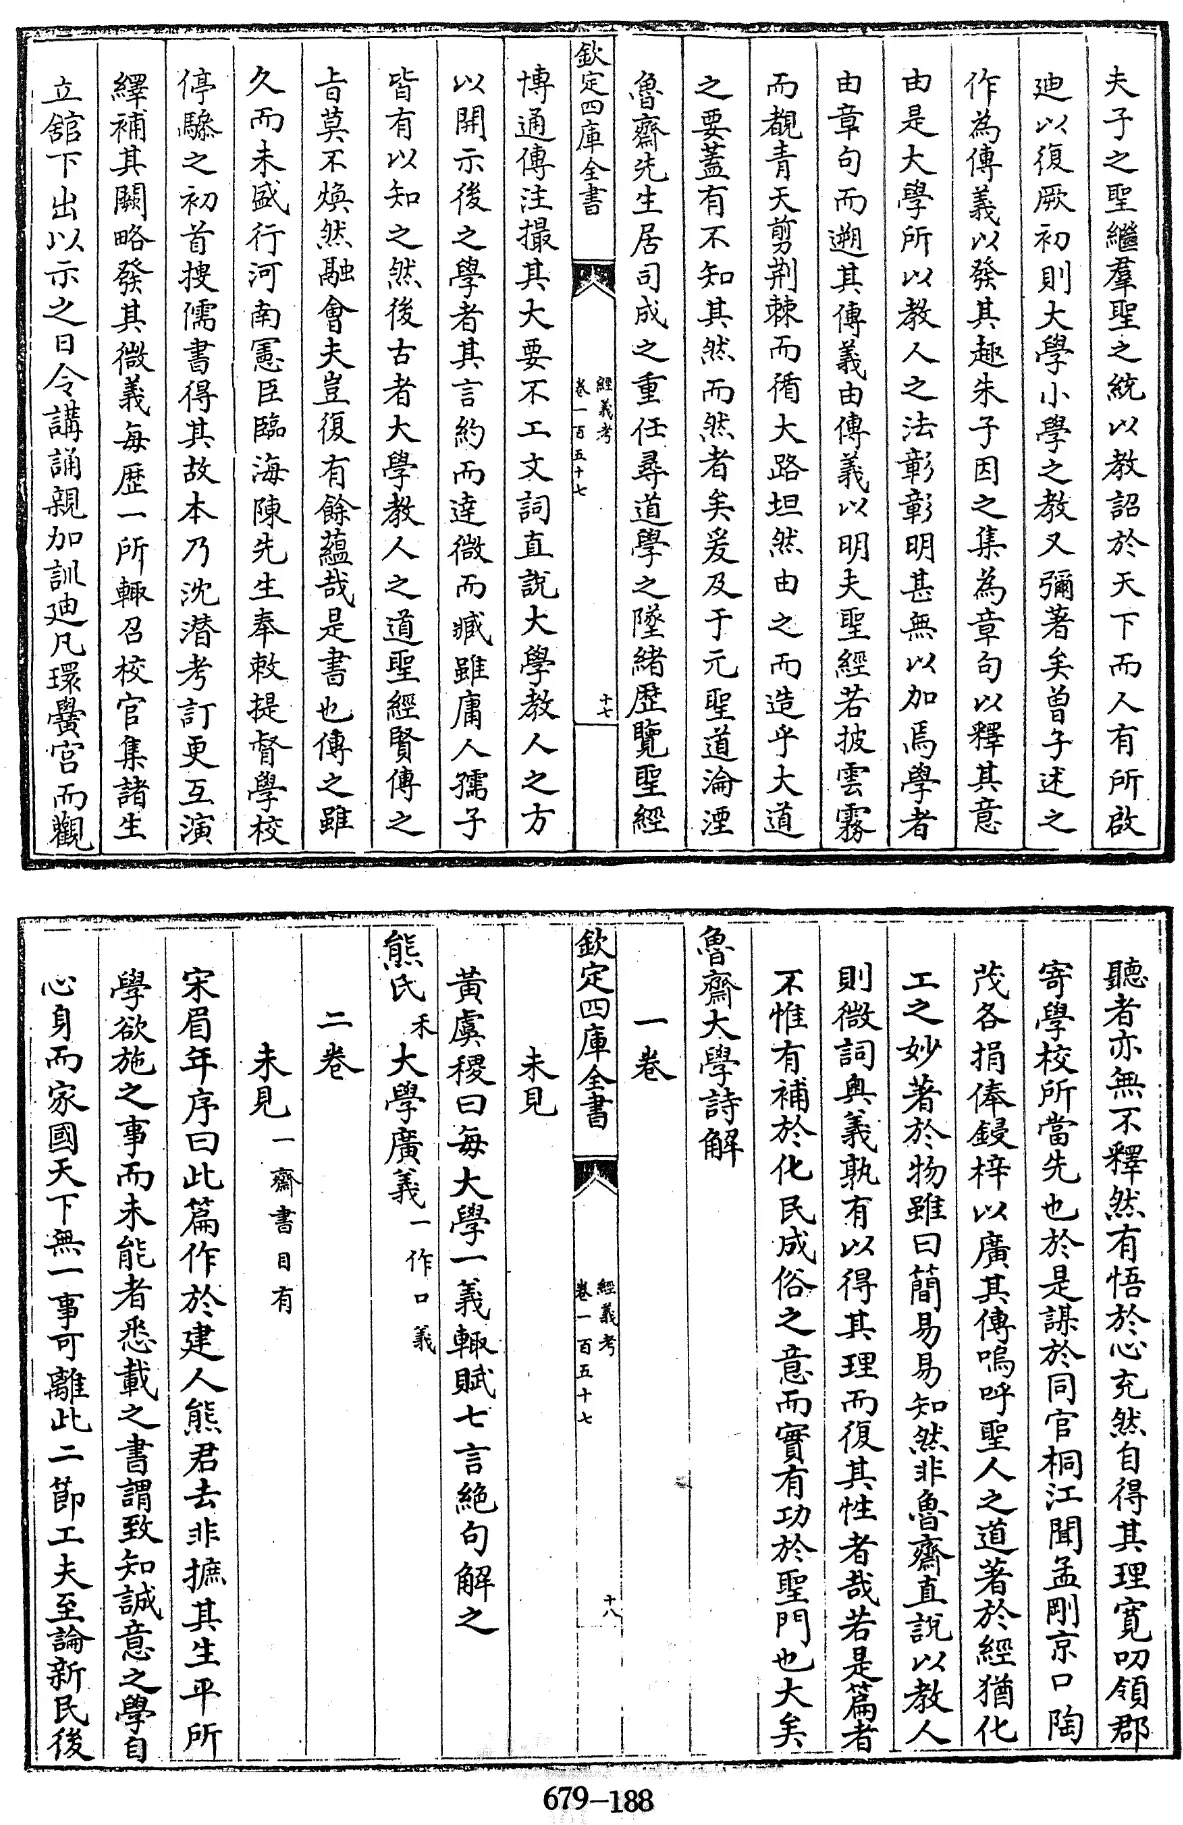 夫子之聖繼羣聖之統以教詔於天下而人有所啟
廸以復厥初則大學小學之教又彌著矣曾子述之
作為傳義以發其趣朱子因之集為章句以釋其意
由是大學所以教人之法彰彰明甚無以加焉學者
由章句而遡其傳義由傳義以明夫聖經若披雲霧
而覩青天剪荆棘而循大路坦然由之而造乎大道
之要蓋有不知其然而然者矣爰及于元聖道淪湮
魯齋先生居司成之重任尋道學之墜緒歴覽聖經
欽定四庫全書
經義考
卷一百五十七
十七
博通傳注撮其大要不工文詞直說大學教人之方
以開示後之學者其言約而達微而臧雖庸人孺子
皆有以知之然後古者大學教人之道聖經賢傳之
旨莫不煥然融會夫豈復有餘蘊哉是書也傳之雖
久而未盛行河南憲臣臨海陳先生奉敕提督學校
停驂之初首捜儒書得其故本乃沈潛考訂更互演
繹補其闕略發其微義每歴一所輙召校官集諸生
立舘下出以示之日令講誦親加訓廸凡環黌宫而觀
聽者亦無不釋然有悟於心充然自得其理寛叨領郡
寄學校所當先也於是謀於同官桐江聞孟剛京口陶
茂各捐俸鋟梓以廣其傳嗚呼聖人之道著於經猶化
工之妙著於物雖曰簡易易知然非魯齋直說以教人
則微詞奥義孰有以得其理而復其性者哉若是篇者
不惟有補於化民成俗之意而實有功於聖門也大矣
魯齋大學詩解
一卷
欽定四庫全書
經義考
卷一百五十七
十八
未見
黄虞稷曰每大學一義輙賦七言絶句解之
熊氏禾大學廣義一作口義
二卷
未見一齋書目有
宋眉年序曰此篇作於建人熊君去非摭其生平所
學欲施之事而未能者悉載之書謂致知誠意之學自
心身而家國天下無一事可離此二節工夫至論新民後
679-188